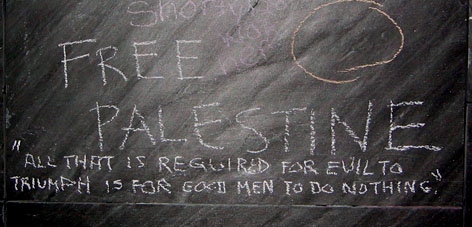 FREE
PALESTINE
"ALL THAT IS REQUIRED FOR EVIL TO
TRIUMPH IS FOR GOOD MEN TO DO NOTHING."